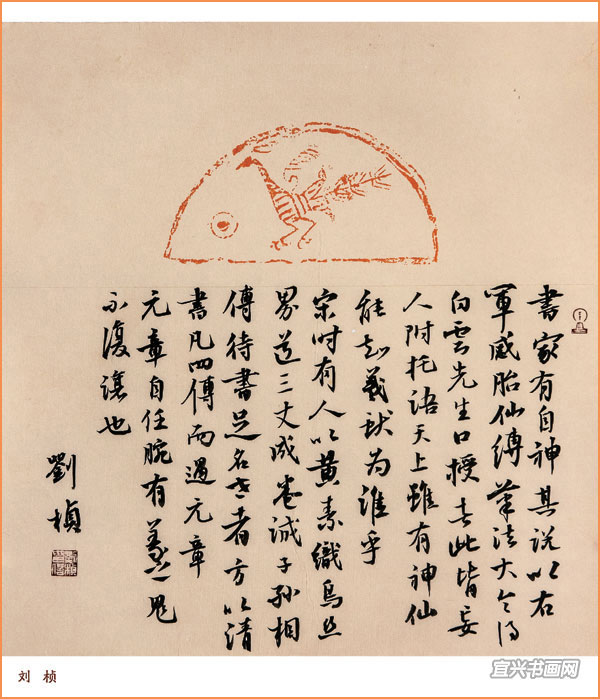 書家有自神其说以右
軍感胎仙傳筆法大令得
白雲先生口授者此皆妄
人附托語天上雖有神仙
能知羲献为誰乎
宋时有人以黄素織烏丝
界道三丈成卷诫子孙相
傳待書足名世者方以請
書凡四傳而遇元章
元章自任腕有羲之鬼
不復讓也
劉楨
刘 桢
宜兴书画网